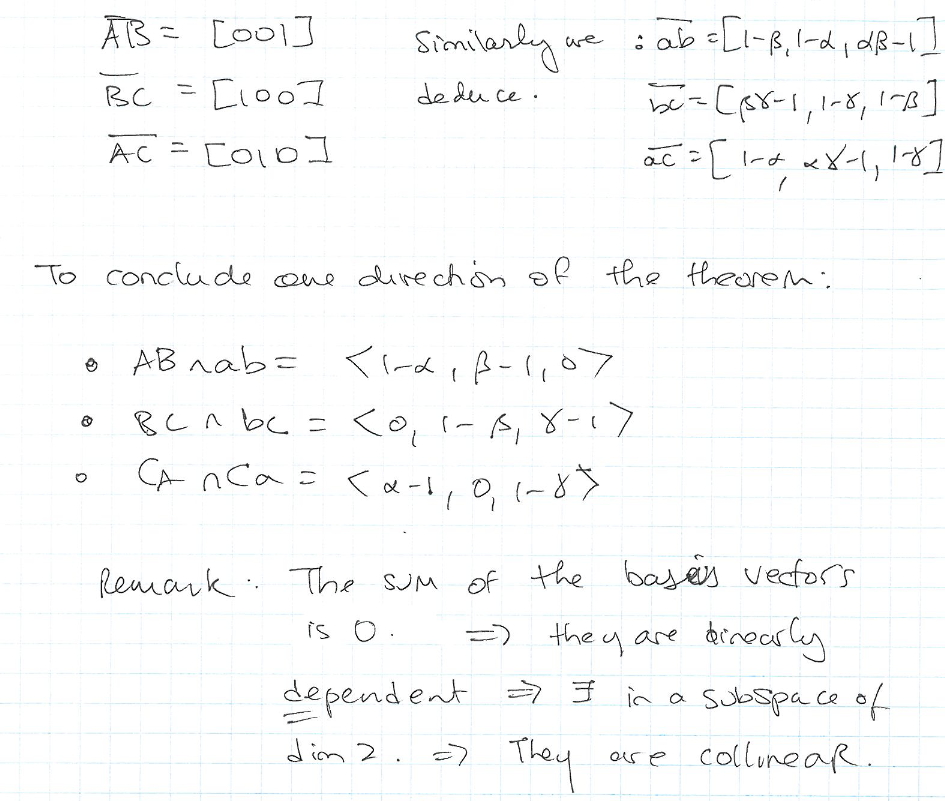 A̅B̅ = [001] Similarly we : a̅b̅ = [1-β, 1-α, αβ-1]
B̅C̅ = [100] deduce. b̅c̅ = [βγ-1, 1-γ, 1-β]
A̅C̅ = [010] a̅c̅ = [1-α, αγ-1, 1-γ]
To conclude one direction of the theorem:
• AB ∩ ab = <1-α, β-1, 0>
• BC ∩ bc = <0, 1-β, γ-1>
• CA ∩ Ca = <α-1, 0, 1-γ>
Remark : The sum of the basis vectors
is 0. => they are linearly
dependent => ∃ in a subspace of
dim 2. => They are collinear.